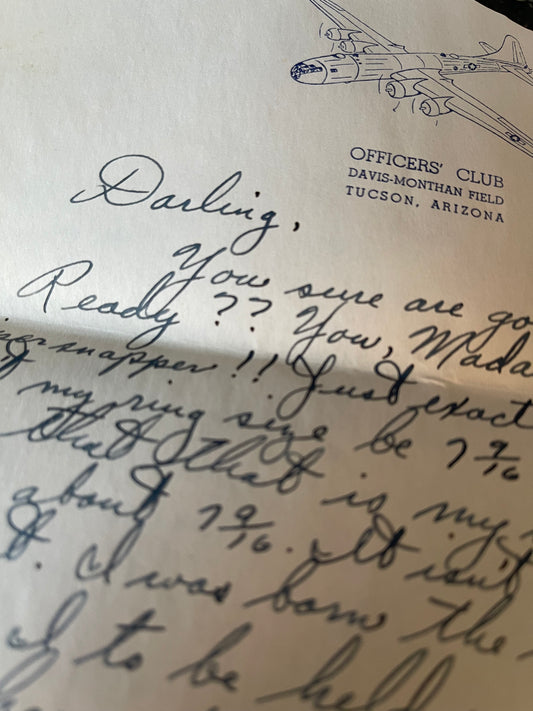 OFFICERS' CLUB
DAVIS-MONTHAN FIELD
TUCSON, ARIZONA
Darling,
You sure are go
Ready?? You, Mada
snapper!! Just exact
my ring size be 7 9/16
that that is my
about 7 9/16. It isn't
I was born the
I to be held